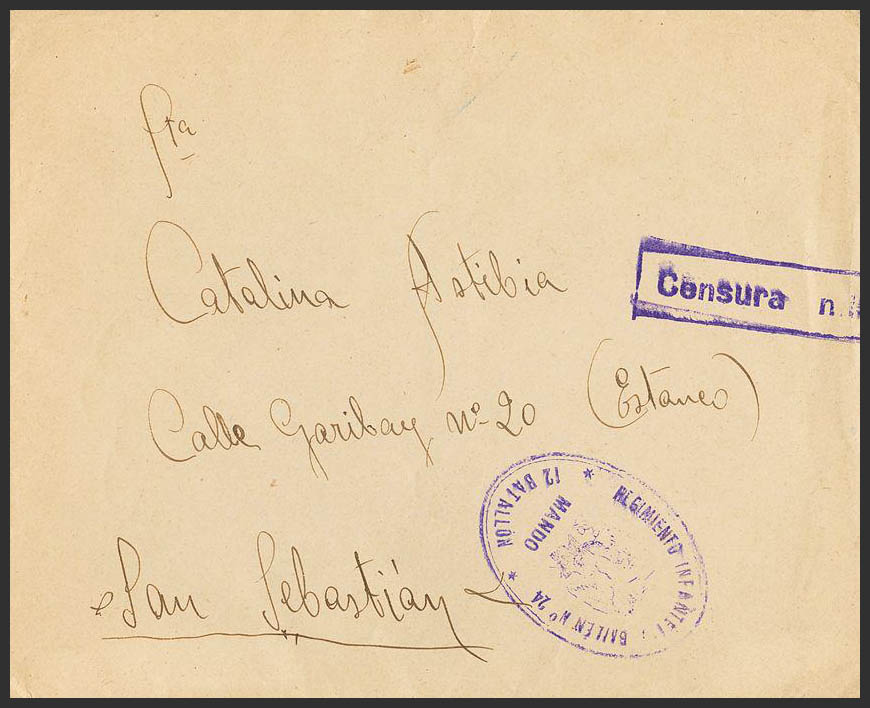 Sta
Catalina Astibia
Censura n.
Calle Garibay nº 20 (Estanco)
San Sebastián
REGIMIENTO INFANTERIA BAILÉN Nº 24
12 BATALLON
MANDO